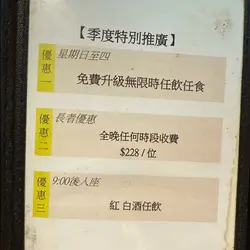 【季度特別推廣】
優惠一
星期日至四
免費升級無限時任飲任食
優惠二
長者優惠
全晚任何時段收費
$228 / 位
優惠三
9:00後入座
紅 白酒任飲